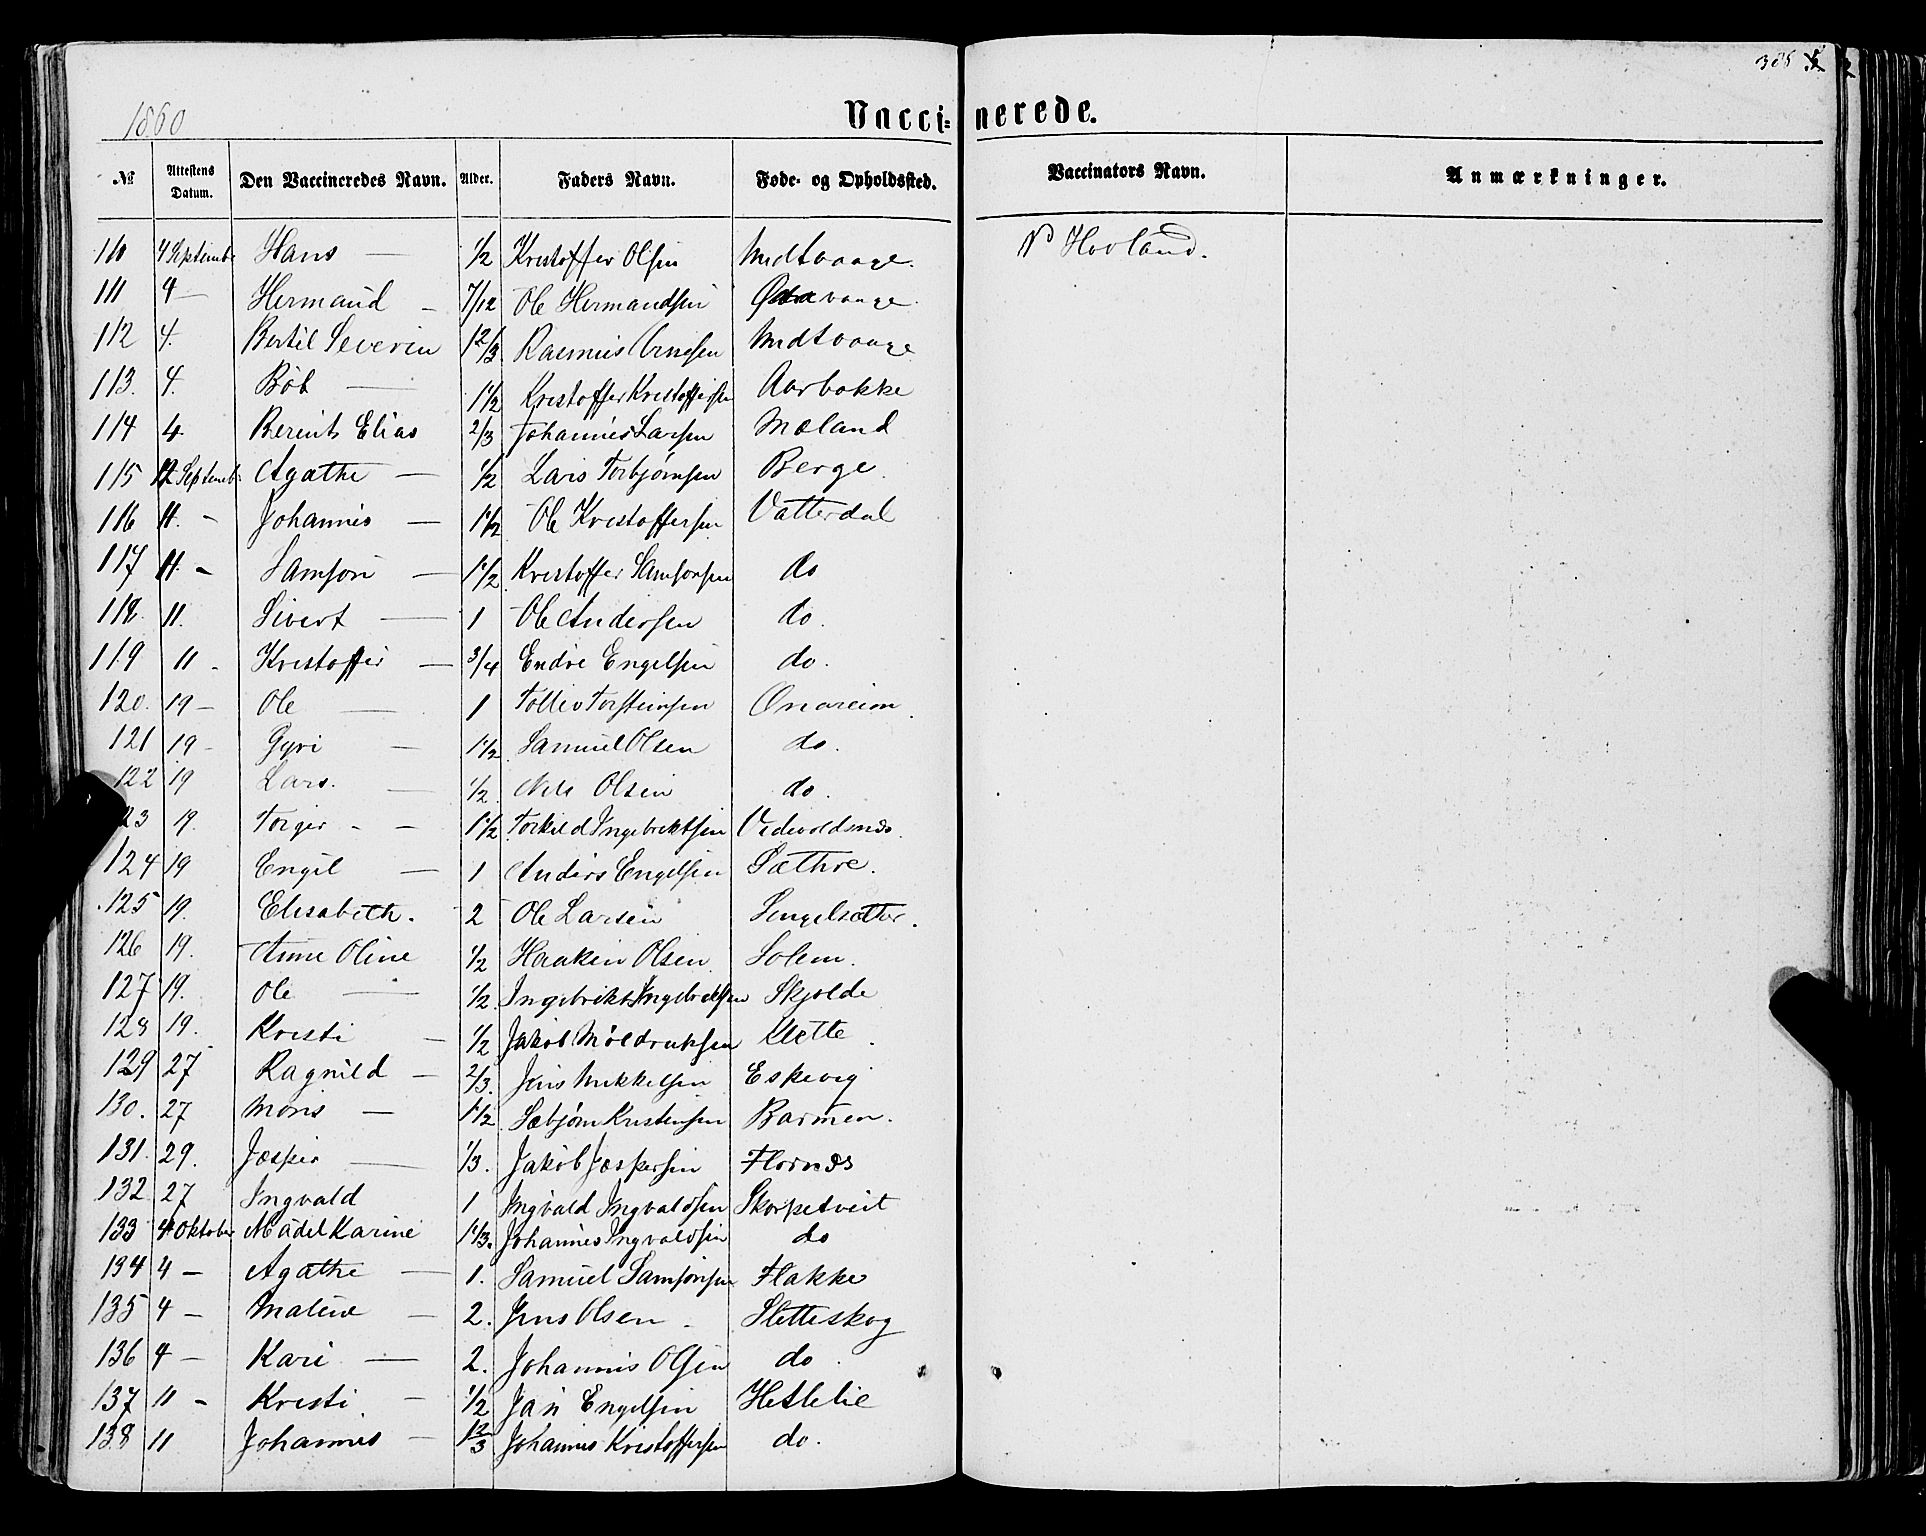 1860
Vaccinerede.
385
№ Attestens Datum. Den Vaccineredes Navn. Alder. Faders Navn. Føde- og Opholdssted. Vaccinators Navn. Anmærkninger.
110 4 Septembr Hans — 1/2 Kristoffer Olsen Midtvaage. P Hovland.
111 4 — Hermand — 7/12 Ole Hermandsen
112 4. Bertil Severin 1 2/3 Rasmus Midtvaage
113. 4. Böt — 1 1/2 Kristoffer Kristoffersen Aarbakke
114 4. Berent Elias 2/3 Johannes Larsen Mæland
115 Septembr Agathe — 1/2 Lars Torbjørnsen Berge.
116 11. - Johannes — 1 1/2 Ole Kristoffersen Vatterdal
117 11. - Samson — 1 1/2 Kristoffer Samsonsen do
118. 11. Sivert — 1 Ole Andersen do.
119 11 - Kristoffer — 3/4 Endre Engelsen do.
120. 19 - Ole — 1 Tollev Torsteinsen Onareim
121 19 - Gyri — 1 1/2 Samuel Olsen do.
122 19 Lars. — 1/2. Nils Olsen do.
123 19. Torger - - 1 1/2 Torkild Ingebriktsen
124 19 Engel — 1 Anders Engelsen Sæthre.
125 19. Elisabeth. - 2 Ole Larsen Singelsætter.
126 19. Anne Oline 1/2 Haaken Olsen Solem.
127 19. Ole — 1/2. Ingebrikt Ingebriktsen Skjolde
128 19. Kristi — 1/2 Jakob Klette.
129 27 Ragnild — 2/3. Jens Mikkelsen Eskevig
130. 27 Mons — 1 1/2 Sæbjørn Kristensen Barmen.
131. 29. Jesper — 1/3. Jakob Jespersen Flornæs
132 27 Ingvald 1 Ingvald Ingvaldsen Skorpetveit
133 4 Oktober Madel Karine 1 1/3. Johannes Ingvaldsen do
134 4 — Agathe — 1. Samuel Samsonsen Flakke
135 4 — Maline — 2. Jens Olsen - Sletteskog
136 4 — Kari — 2. Johannes Olsen do.
137 11 - Kristi — 1/2 Jan Engelsen Hetlelie
138 11 Johannes — 1 2/3 Johannes Kristoffersen do.